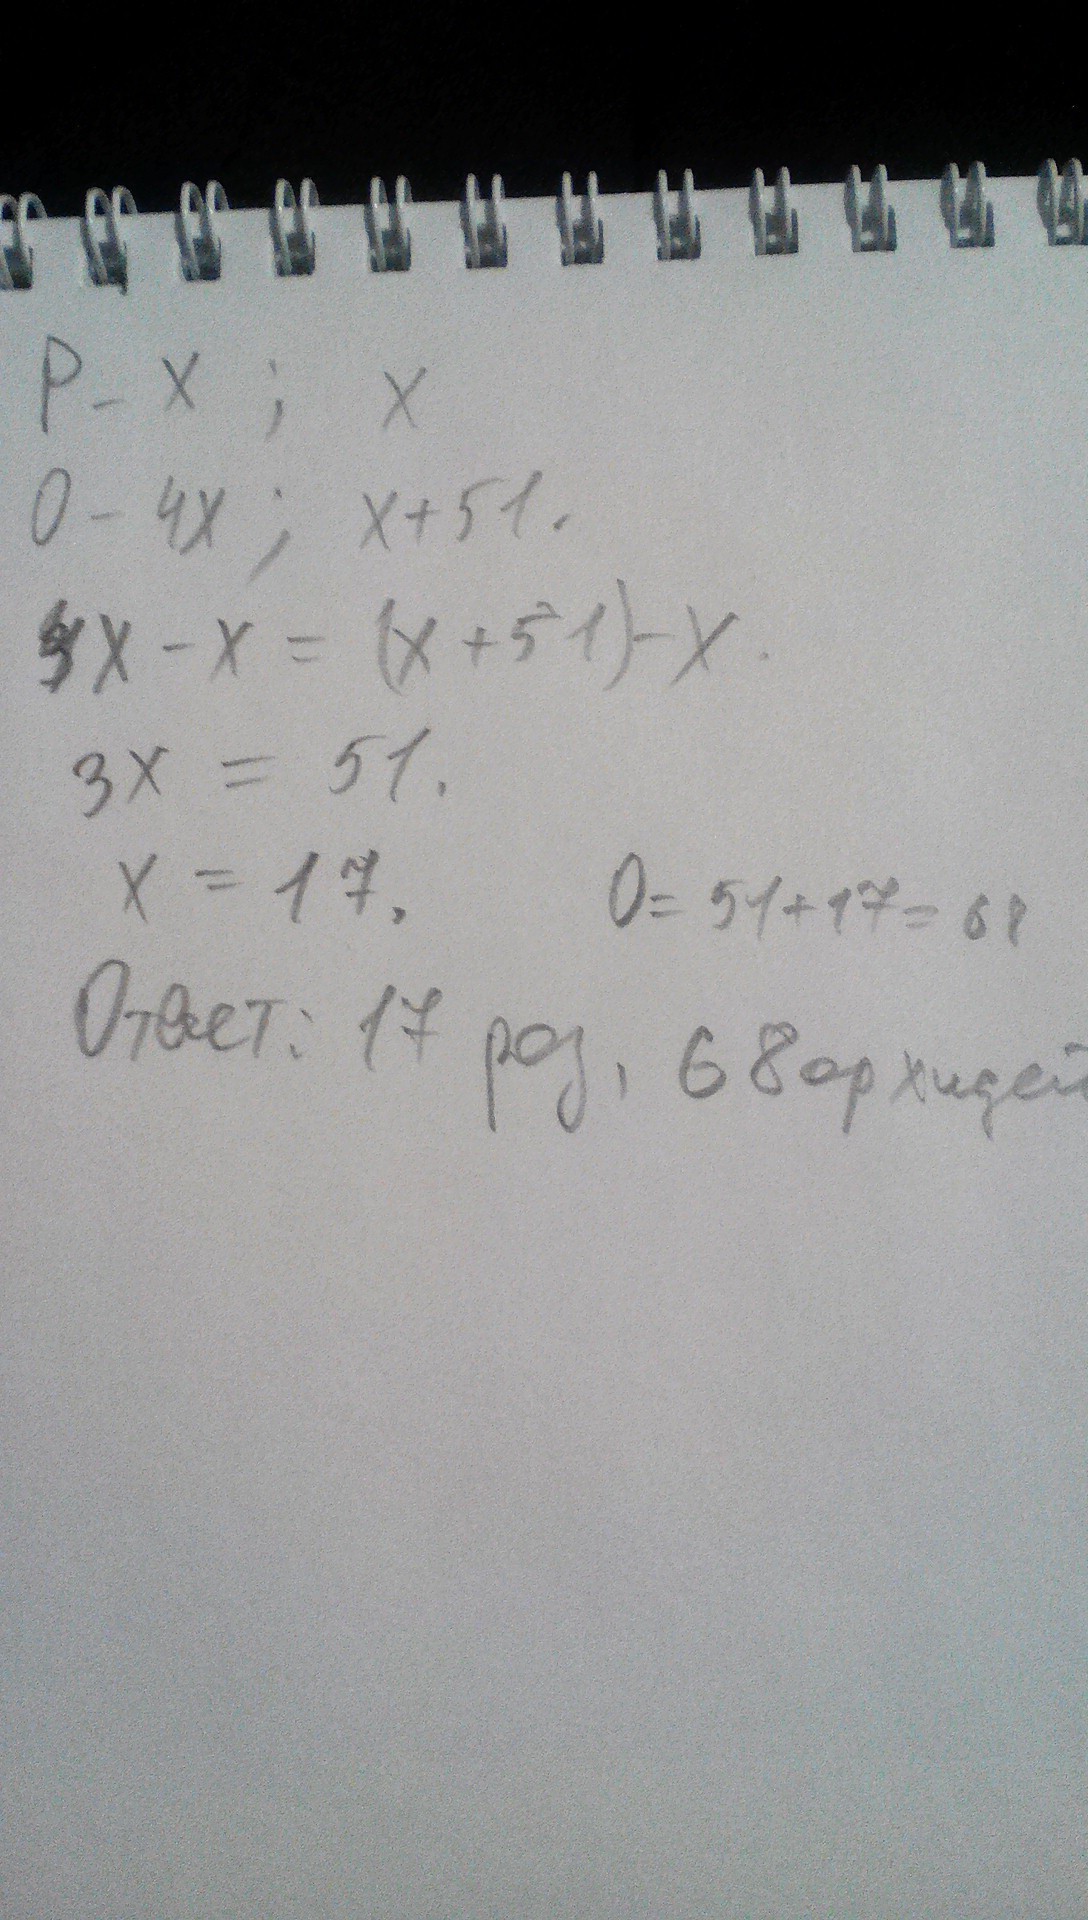 Р - х ; х
О - 4х ; х+51.
4х - х = (х + 51) - х.
3х = 51.
х = 17.
О = 51+17= 68
Ответ: 17 роз, 68 орхидей